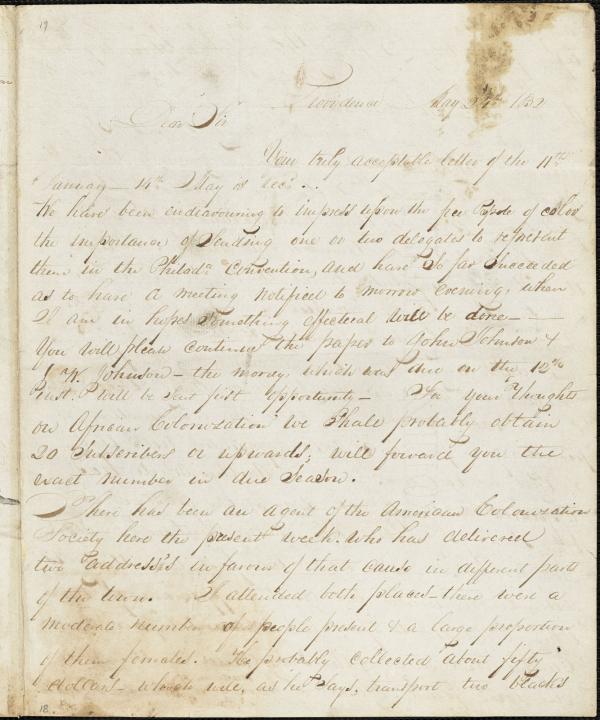 19
Providence May 24th 1832
Dear Sir
Your truly acceptable letter of the 11th
January – 14th May is recd. ..
We have been endeavouring to impress upon the free People of color
the importance of sending one or two delegates to represent
them in the Philada. Convention, and have so far succeeded
as to have a meeting notified to morrow evening, when
I am in hopes something effectual will be done –
You will please continue the paper to John Johnson &
J. W. Johnson – the money which was due on the 12th
inst. I will be sent first opportunity – For your Thoughts
on African Colonization we shall probably obtain
20 subscribers or upwards; will forward you the
exact number in due season.
There has been an agent of the American Colonization
Society here the present week. who has delivered
two address's in favour of that cause in different parts
of the town. I attended both places – there were a
moderate number of people present & a large proportion
of them females. He probably collected about fifty
dollars – which will, as he says, transport two blacks
18.